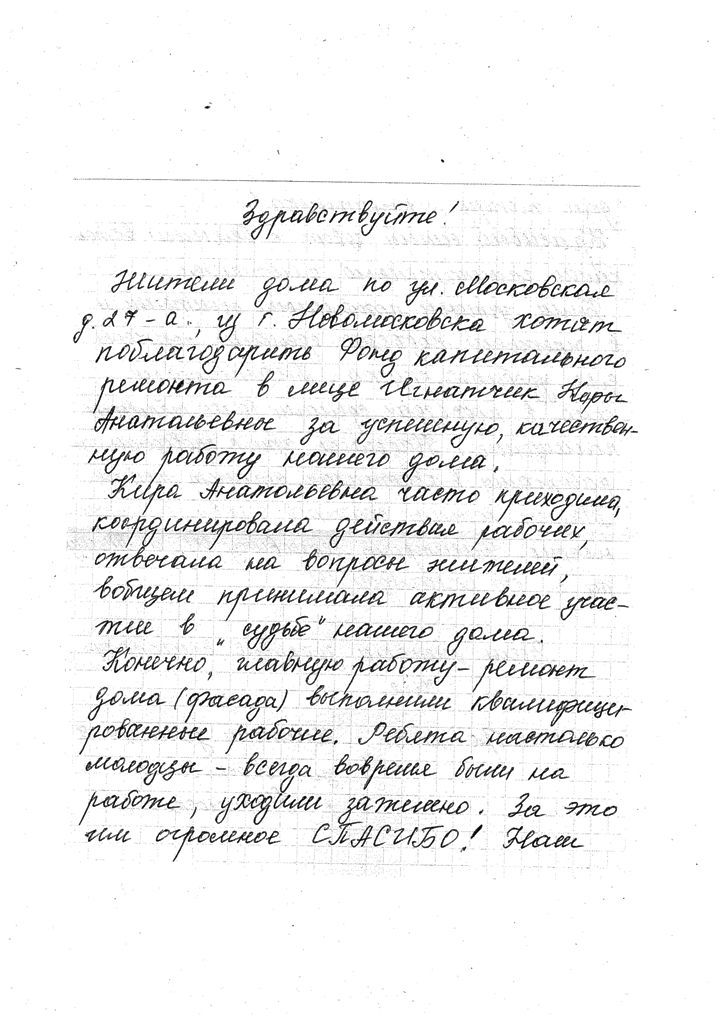 Здравствуйте!
Жители дома по ул. Московская
д. 27-а., из г. Новомосковска хотят
поблагодарить Фонд капитального
ремонта в лице Игнатчик Киры
Анатольевны за успешную, качествен-
ную работу нашего дома.
Кира Анатольевна часто приходила,
координировала действия рабочих,
отвечала на вопросы жителей,
вобщем принимала активное учас-
тие в „судьбе" нашего дома.
Конечно, главную работу – ремонт
дома (фасада) выполнили квалифици-
рованные рабочие. Ребята настолько
молодцы – всегда вовремя были на
работе, уходили затемно. За это
им огромное СПАСИБО! Наш